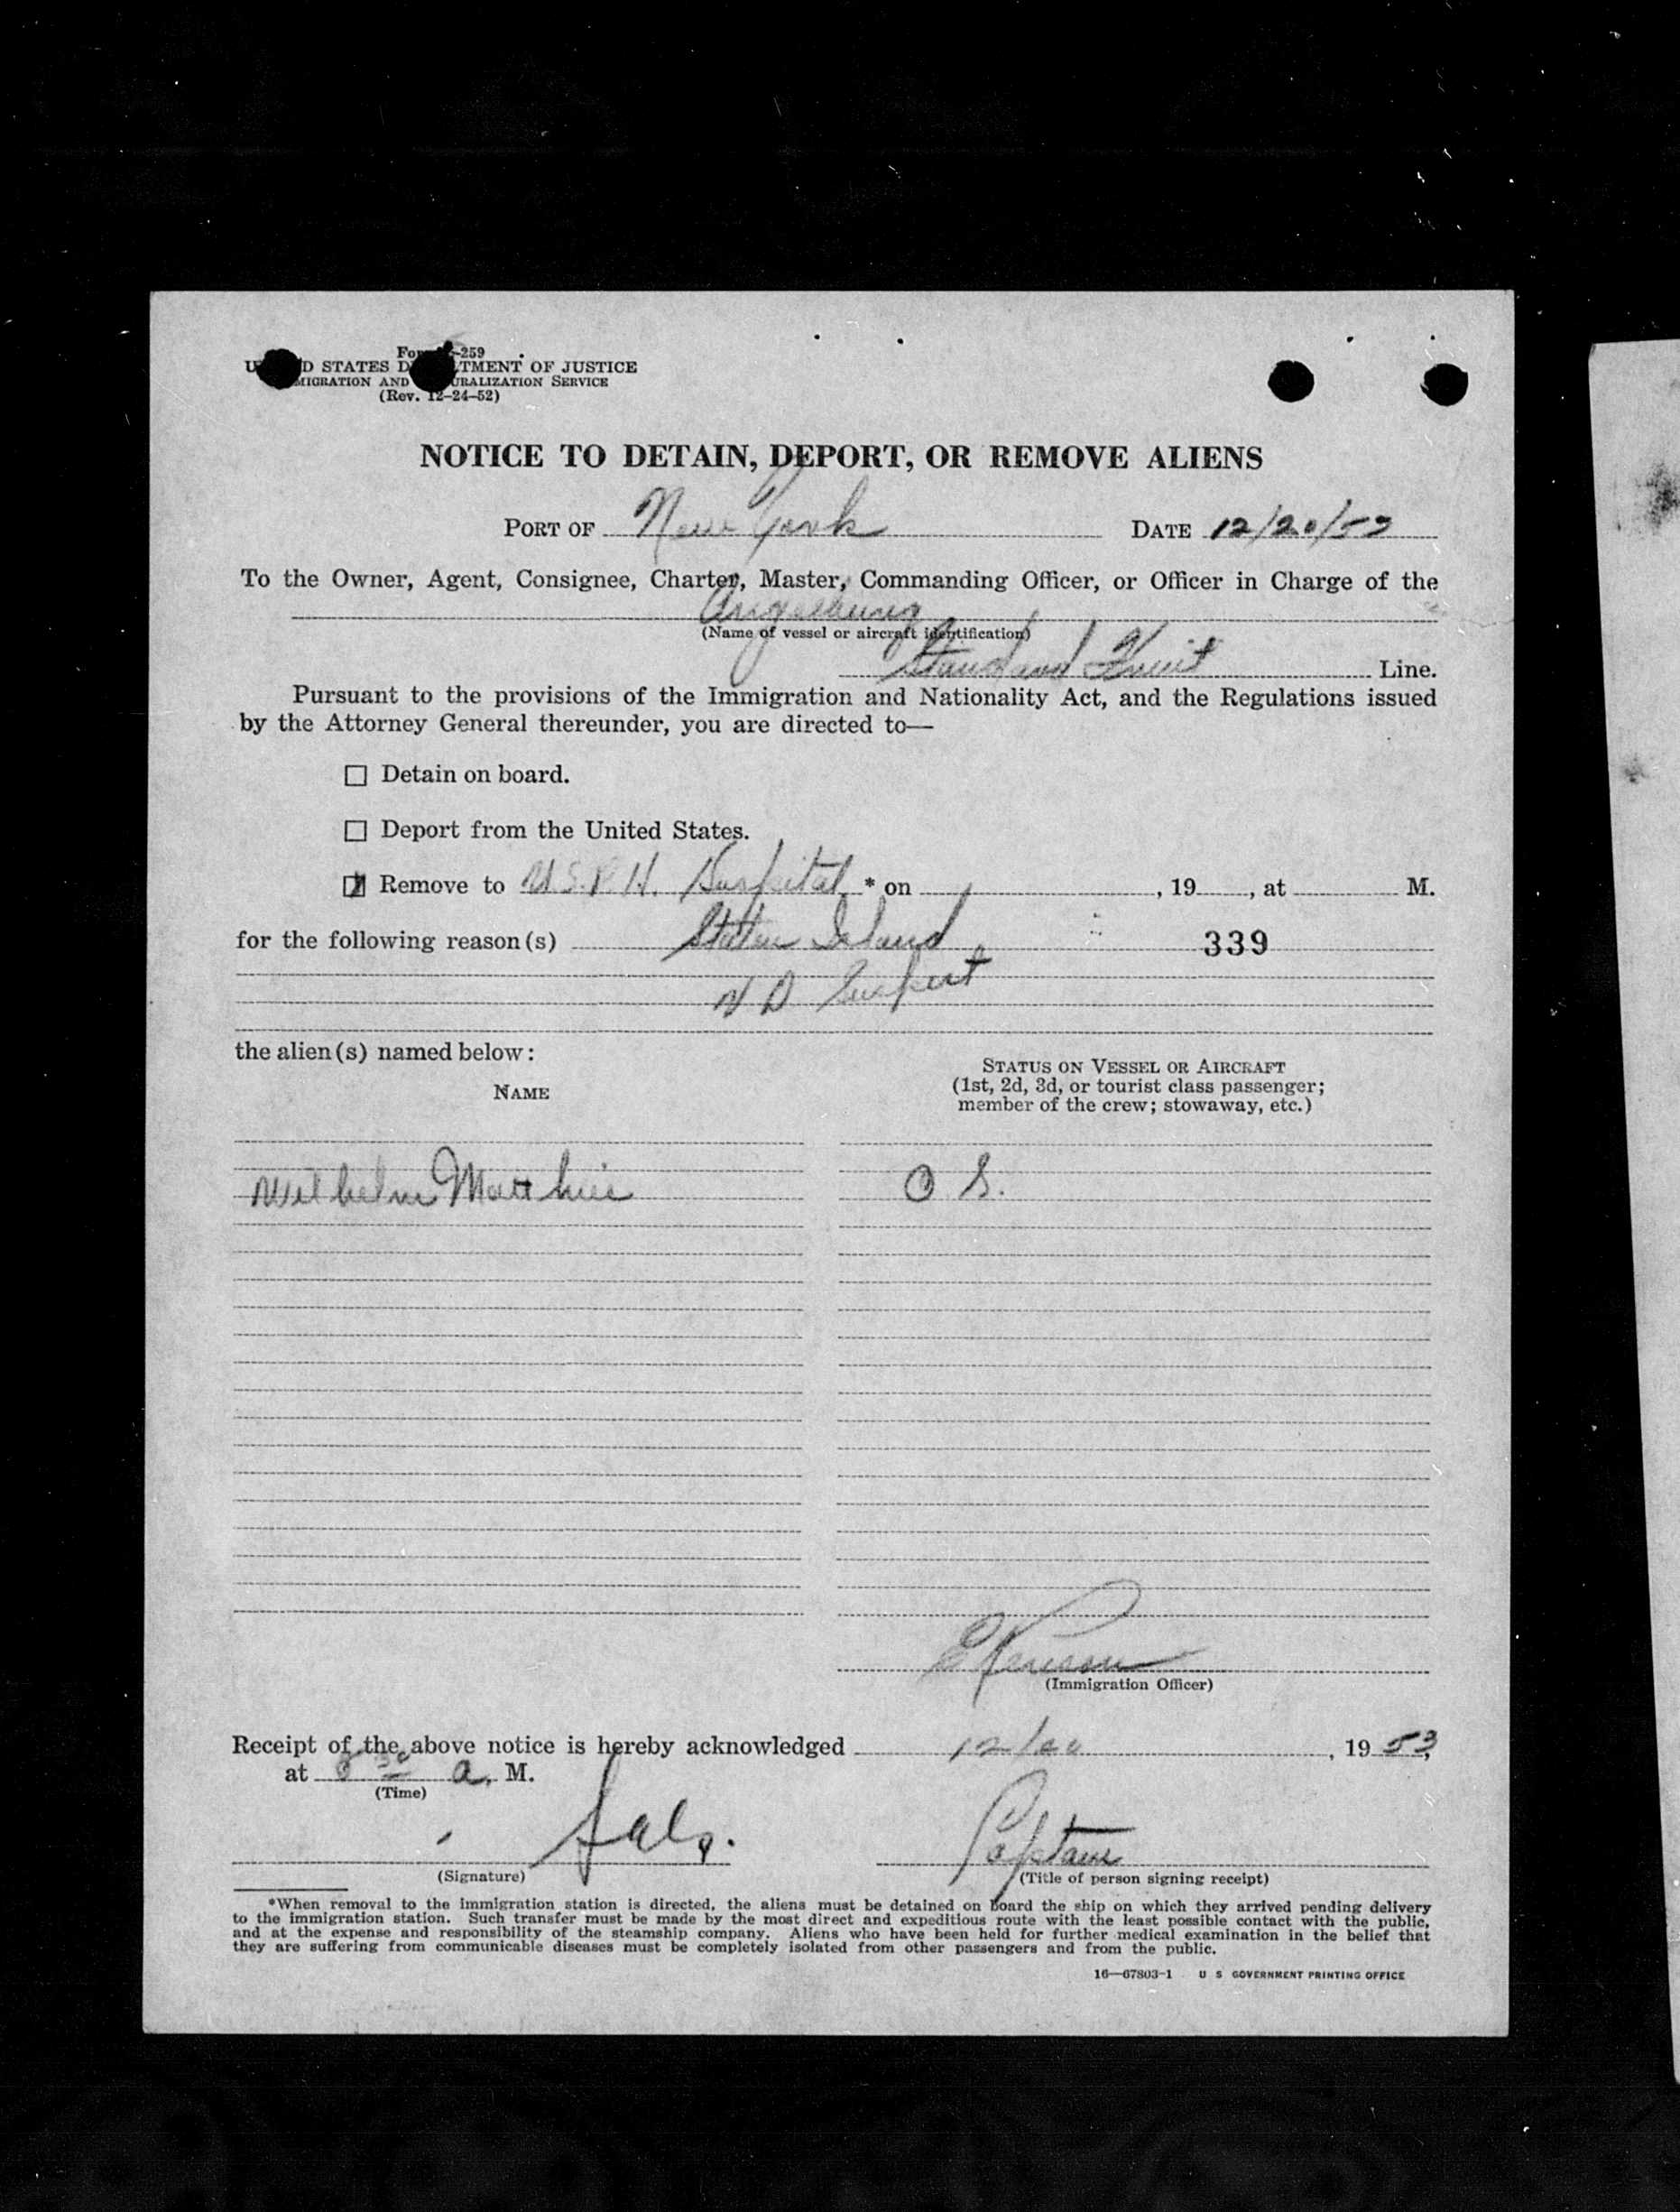 Form I-259
UNITED STATES DEPARTMENT OF JUSTICE
IMMIGRATION AND NATURALIZATION SERVICE
(Rev. 12-24-52)
NOTICE TO DETAIN, DEPORT, OR REMOVE ALIENS
PORT OF New York DATE 12/20/53
To the Owner, Agent, Consignee, Charter, Master, Commanding Officer, or Officer in Charge of the
Angelburg
(Name of vessel or aircraft identification)
Standard Fruit Line.
Pursuant to the provisions of the Immigration and Nationality Act, and the Regulations issued
by the Attorney General thereunder, you are directed to—
Detain on board.
Deport from the United States.
Remove to U.S.P.H. Hospital * on , 19 , at M.
for the following reason(s) Staten Island 339
V D Suspect
the alien(s) named below:
NAME
STATUS ON VESSEL OR AIRCRAFT
(1st, 2d, 3d, or tourist class passenger;
member of the crew; stowaway, etc.)
Wilhelm Matthies O S.
(Immigration Officer)
Receipt of the above notice is hereby acknowledged 12/20, 1953,
at 8 30 a. M.
(Time)
Captain
(Signature) (Title of person signing receipt)
*When removal to the immigration station is directed, the aliens must be detained on board the ship on which they arrived pending delivery
to the immigration station. Such transfer must be made by the most direct and expeditious route with the least possible contact with the public,
and at the expense and responsibility of the steamship company. Aliens who have been held for further medical examination in the belief that
they are suffering from communicable diseases must be completely isolated from other passengers and from the public.
16—67803-1 U S GOVERNMENT PRINTING OFFICE